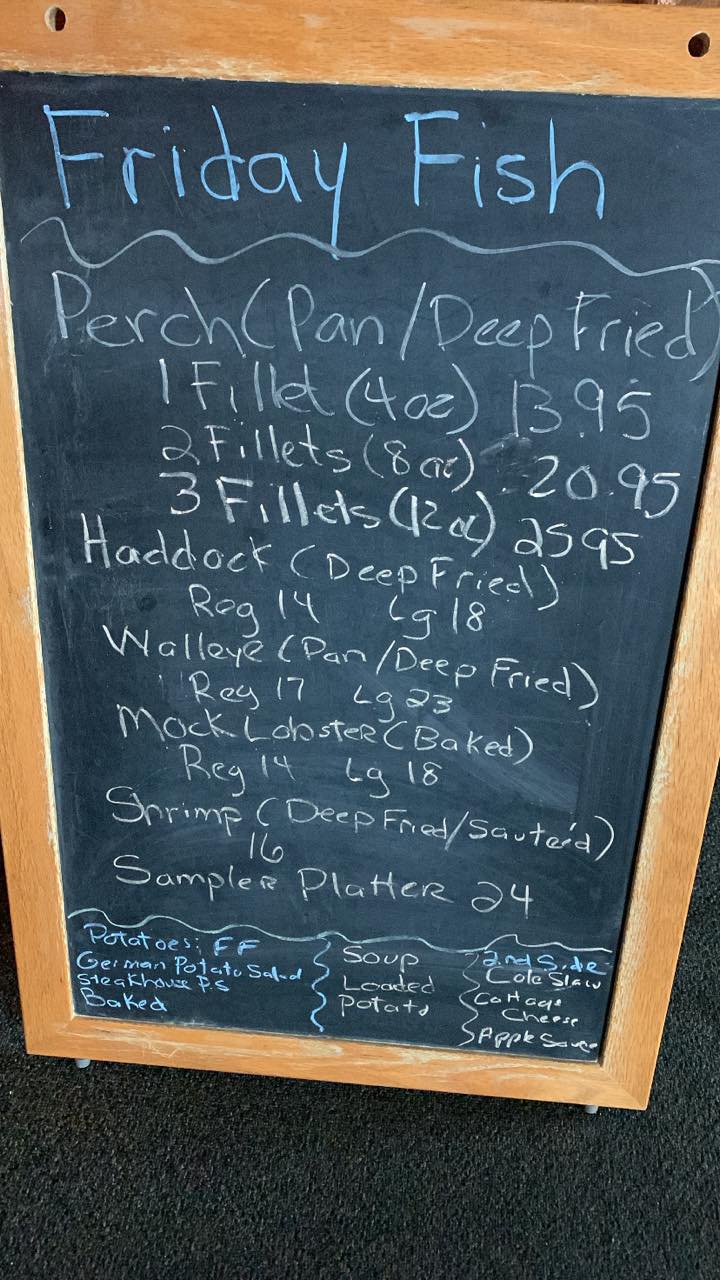 Friday Fish
Perch (Pan/Deep Fried)
1 Fillet (4oz) 13.95
2 Fillets (8oz) 20.95
3 Fillets (12oz) 25 95
Haddock (Deep Fried)
Reg 14 Lg 18
Walleye (Pan/Deep Fried)
Reg 17 Lg 23
Mock Lobster (Baked)
Reg 14 Lg 18
Shrimp (Deep Fried/Sauteéd)
16
Sampler Platter 24
Potatoes: FF
German Potato Salad
Steakhouse P.S
Baked
Soup
Loaded
Potato
2nd Side
Cole Slaw
Cottage
Cheese
Apple Sauce